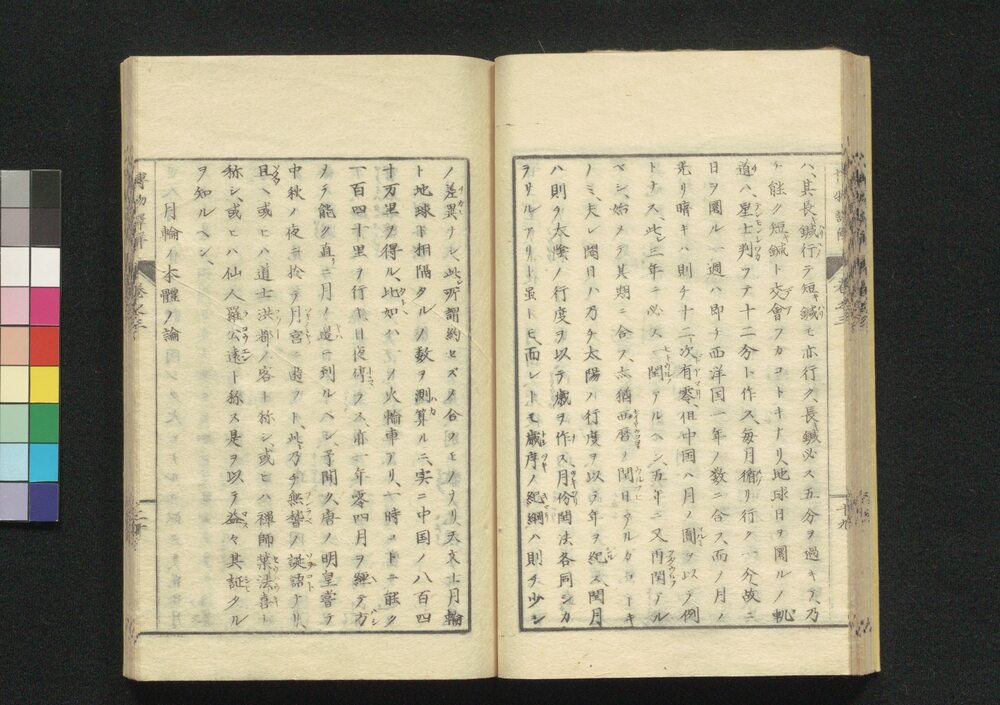 ハ、其長鍼行テ短鍼モ亦行ク、長鍼必ス五分ヲ過キテ、乃
チ能ク短鍼ト交會フカコトキナリ、地球日ヲ圍ルノ軌
道ハ、星士判ツテ十二分ト作ス、每月循リ行ク一分、故ニ
日ヲ圍ル一週ハ即チ西洋国一年ノ数ニ合フ、而ノ月ノ
光リ暗キハ則チ十二次有零、但中国ハ月ノ圓ヲ以テ例
トナス、此レ三年ニ必ス一閏アルヘシ、五年ニ又再閏アル
ベシ、始メテ其期ニ合フ、亦猶西曆ノ閏日ウルカコトキ
ノミ、夫レ閏日ハ乃チ太陽ノ行度ヲ以テ年ヲ紀ス、閏月
ハ則チ太陰ノ行度ヲ以テ歲ヲ作ス、月份閏法各同シカ
ラサルアリト虽トモ、而レトモ歲序ノ紀綱ハ則チ少シ
ノ差異ナシ、此レ所謂約セズノ合フモノナリ、天文士月輪
ト地球ト相隔タルノ数ヲ測算ルニ、実ニ中国ノ八百四
十万里ヲ得ル、比如ハ一ノ火輪車アリ、一時コトニ能ク
一百四十里ヲ行キ、日夜停ラス、亦一年零四月ヲ經テ、方
ノテ能ク直ニ月ノ邊ニ到ルヘシ、予聞ク、唐ノ明皇嘗テ
中秋ノ夜ニ於テ月宮ニ遊フト、此乃チ無稽ノ誕語ナリ、
且ヘ或ヒハ道士洪都ノ客ト称シ、或ヒハ禪師葉法善ト
称シ、或ヒハ仙人羅公遠ト称ス、是ヲ以テ益々其証タル
ヲ知ルヘシ、
月輪本體ノ論
博物譯解 卷之三
二十